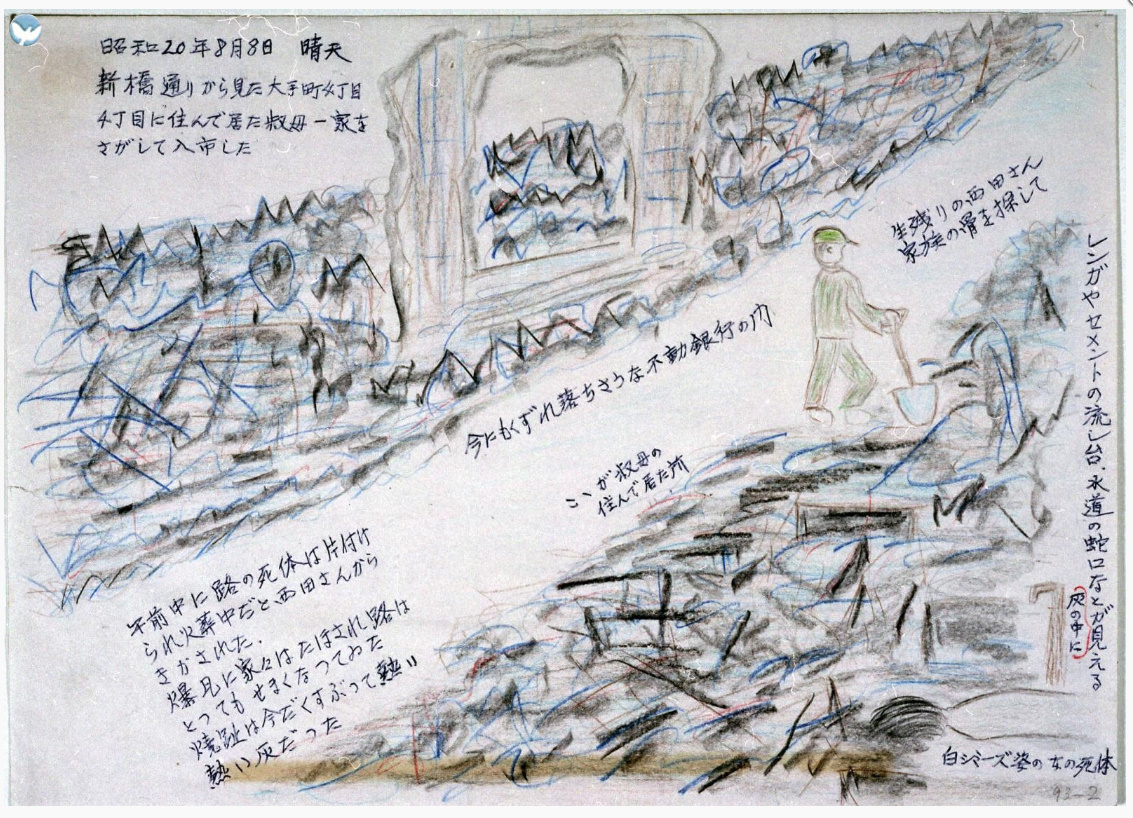 昭和20年8月8日 晴天
新橋通りから見た大手町4丁目
4丁目に住んで居た叔母一家を
さがして入市した
生残りの西田さん
家族の骨を探して
レンガやセメントの流し台、水道の蛇口などが見える
灰の中に
今にもくずれ落ちさうな不動銀行の門
ここが叔母の
住んで居た所
午前中に路の死体は片付け
られ火葬中だと、西田さんから
きかされた.
爆風に家々はたほされ路は
とってもせまくなってゐた
焼趾は今だくすぶって熱い
熱い灰だった
白シミーズ姿の女の死体
93-2